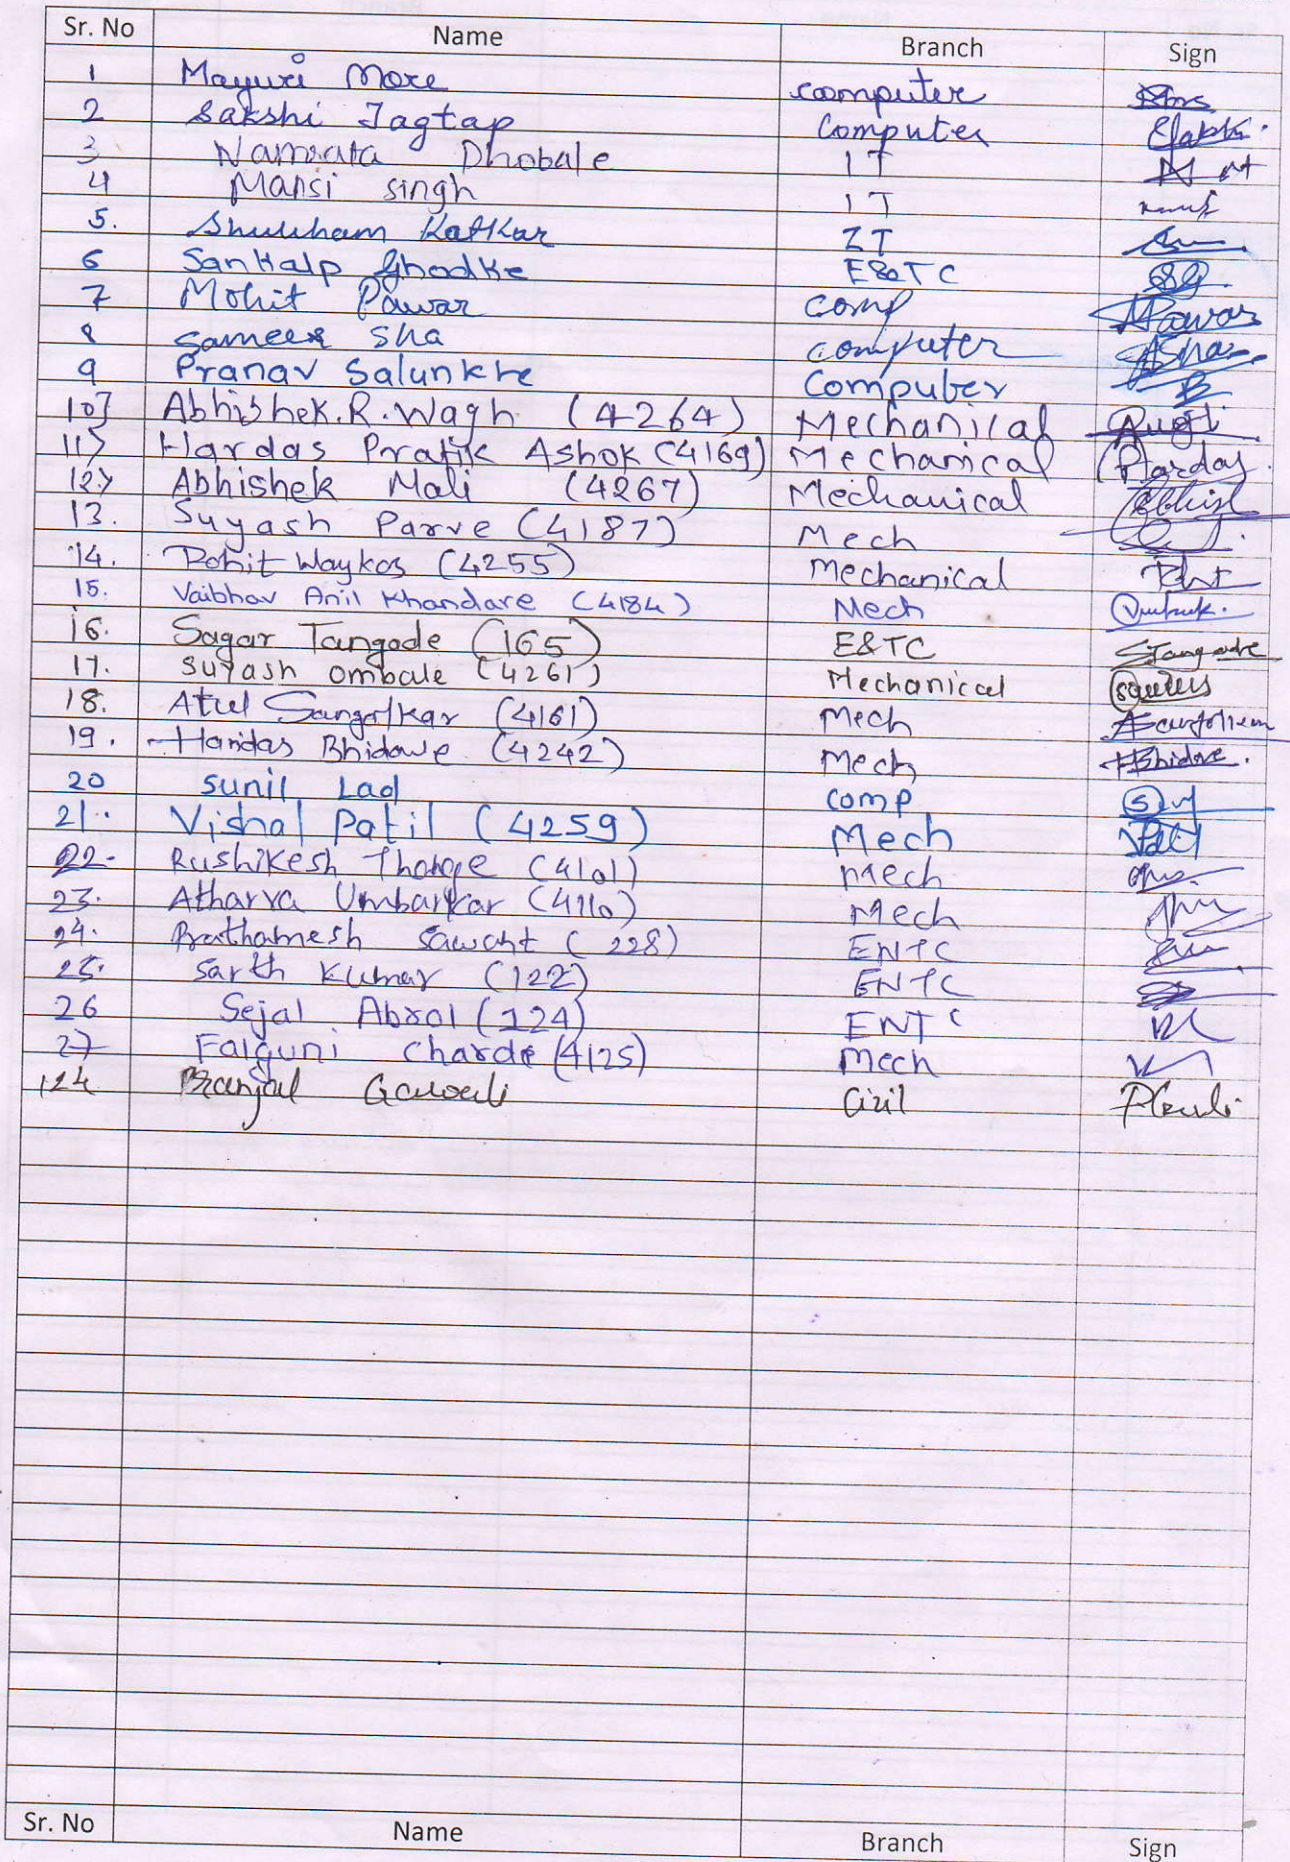 Sr. No Name Branch Sign
1 Mayuri More computer
2 Sakshi Jagtap Computer
3 Namrata Dhobale IT
4 Mansi singh IT
5. Shubham Katkar IT
6 Sankalp Ghodke E&TC SG
7 Mohit Pawar comp Pawar
8 Sameer Sha computer Sha
9 Pranav Salunkhe Computer
10] Abhishek.R.Wagh (4264) Mechanical
11) Hardas Pratik Ashok (4169) Mechanical Hardas
12) Abhishek Mali (4267) Mechanical
13. Suyash Parve (4187) Mech
14. Rohit Waykos (4255) Mechanical
15. Vaibhav Anil Khandare (4184) Mech
16. Sagar Tangode (165) E&TC STangode
17. Suyash Ombale (4261) Mechanical
18. Atul (4161) Mech
19. Haridas Bhidave (4242) Mech HBhidave.
20 Sunil Lad comp
21. Vishal Patil (4259) Mech
22. Rushikesh Thorge (4101) Mech
23. Atharva Umbarkar (4110) Mech
24. Prathamesh Sawant (228) ENTC
25. Sarth Kumar (122) ENTC
26 Sejal Abrol (124) ENTC
27 Falguni Charde (4125) Mech
124 Pranjal Gawali Civil
Sr. No Name Branch Sign